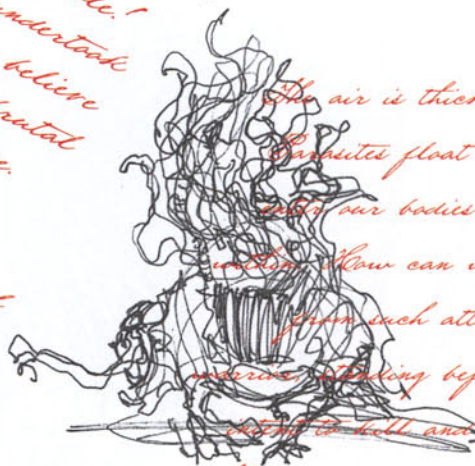 de!
undertook
believe
brutal
The air is thick
Parasites float
enter our bodies
within. How can
from such att
warrior, standing bef
intent to kill and